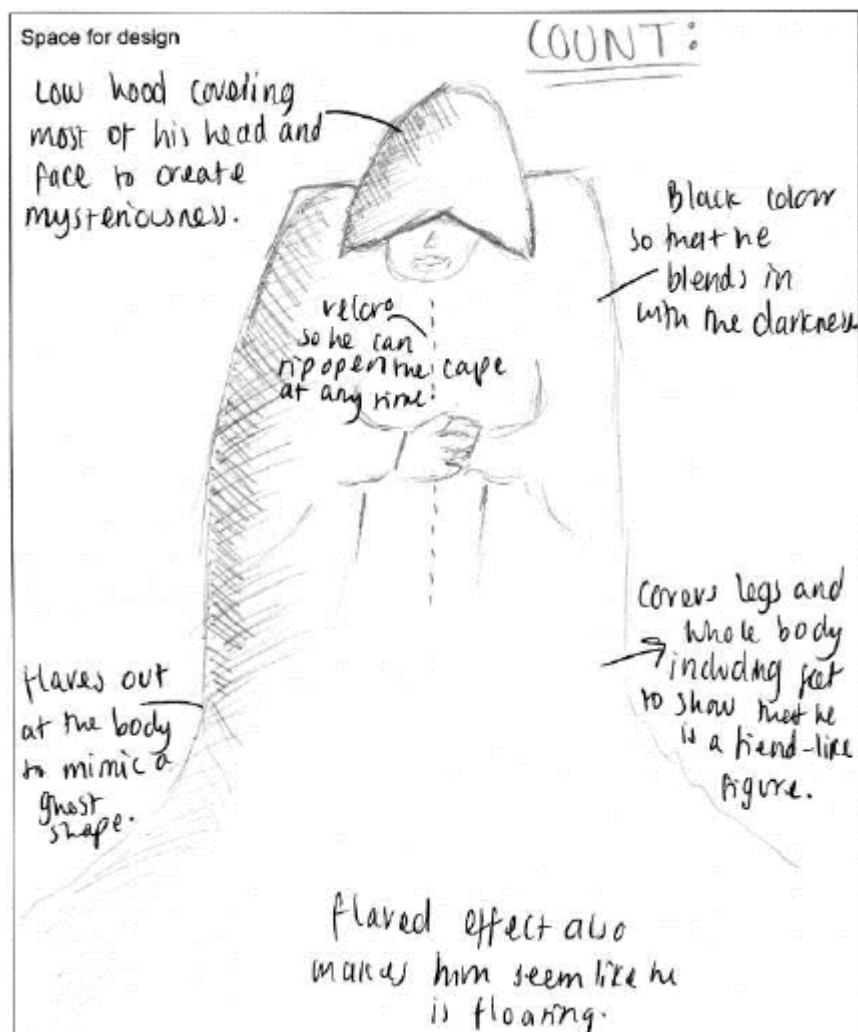 Space for design
COUNT:
Low hood covering
most of his head and
face to create
mysteriousness.
Black colour
so that he
blends in
with the darkness
velcro
so he can
rip open the cape
at any time.
Covers legs and
whole body
including feet
to show that he
is a fiend-like
figure.
flares out
at the body
to mimic a
ghost
shape.
flared effect also
makes him seem like he
is floating.